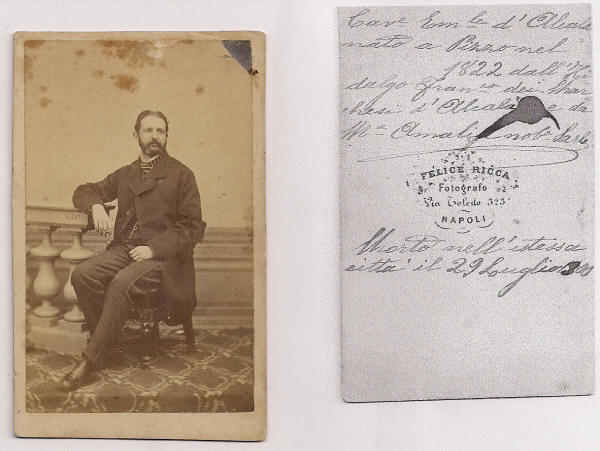 Cavᵉ Emˡᵉ d'Alcalà
nato a Pizzo nel
1822 dall' Hi
dalgo Franᶜᵒ dei Mar
chesi d'Alcalà e da
Mᵃ Amalia nobᵉ
FELICE RICCA
Fotografo
Via Toledo 323
NAPOLI
Morto nell'istessa
città il 29 Luglio